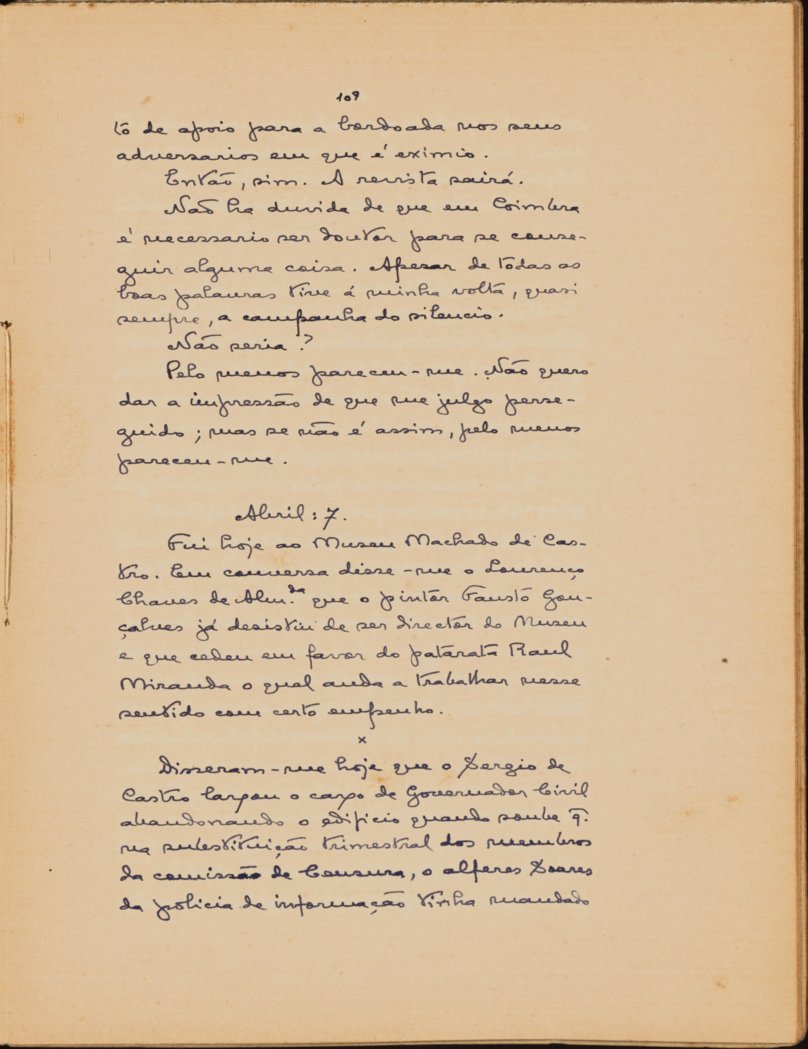 109
to de apoio para a bordoada nos seus
adversarios em que é eximio.
Então, sim. A revista sairá.
Não ha duvida de que em Coimbra
é necessario ser doutor para se conse-
guir alguma coisa. Apesar de todas as
boas palavras tive á minha volta, quasi
sempre, a campanha do silencio.
Não seria?
Pelo menos pareceu-me. Não quero
dar a impressão de que me julgo perse-
guido; mas se não é assim, pelo menos
pareceu-me.
Abril: 7.
Fui hoje ao Museu Machado de Cas-
tro. Em conversa disse-me o Lourenço
Chaves de Alm.da que o pintor Fausto Gon-
çalves já desistiu de ser director do Museu
e que cedeu em favor do patarata Raul
Miranda o qual anda a trabalhar nesse
sentido com certo empenho.
x
Disseram-me hoje que o Sergio de
Castro largou o cargo de Governador Civil
abandonando o edificio quando soube q.
na substituição trimestral dos membros
da comissão de Censura, o alferes Soares
da policia de informação tinha mandado